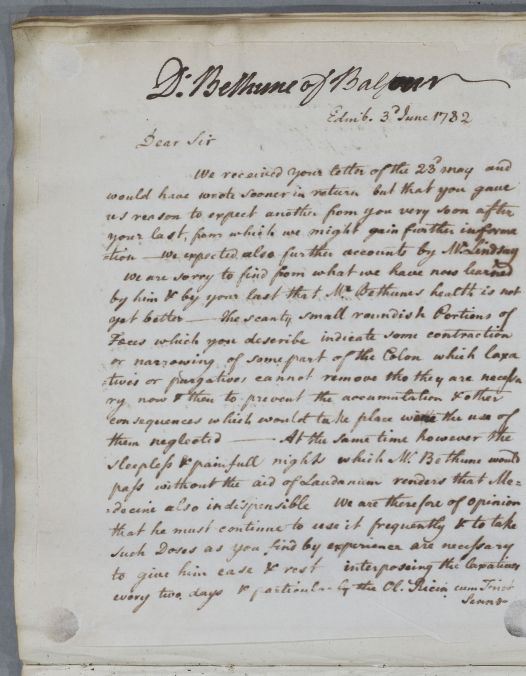 Dr. Bethune of Balfour
Edinb. 3d June 1782
Dear Sir
We received your letter of the 23d may and
would have wrote sooner in return but that you gave
us reason to expect another from you very soon after
your last, from which we might gain further informa
=tion — we expected also further accounts by Mr. Lindsay
We are sorry to find from what we have now learned
by him & by your last that Mr. Bethunes health is not
yet better — the scanty small roundish Portions of
Faeces which you describe indicate some contraction
or narrowing of some part of the Colon which laxa
=tives or purgatives cannot remove tho they are necessa
ry now & then to prevent the accumulation & other
consequences which would take place were the use of
them neglected — At the same time however the
sleepless & painfull nights which Mr. Bethune would
pass without the aid of Laudanum renders that Me=
=decine also indispensible We are therefore of opinion
that he must continue to use it frequently & to take
such Doses as you find by experience are necessary
to give him ease & rest interposing the laxatives
every two days & particularly the Ol. Ricini cum Tinct
Sennae